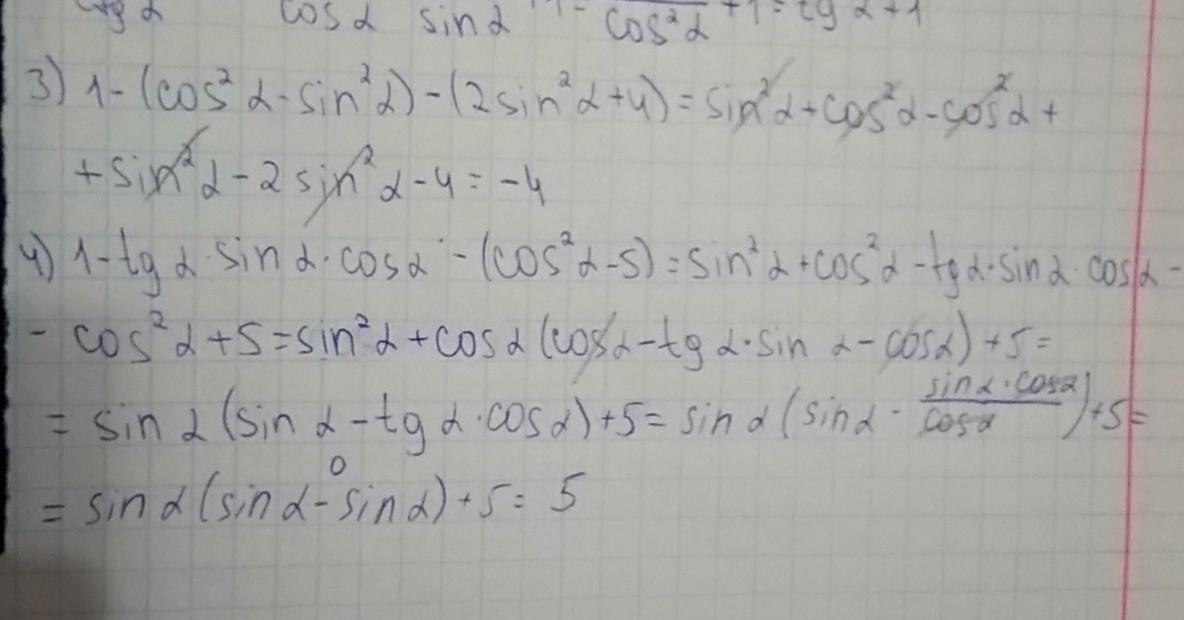 cos α sin α cos²α +1 = tg α + 1
3) 1 - (cos²α - sin²α) - (2sin²α + 4) = sin²α + cos²α - cos²α +
+ sin²α - 2 sin²α - 4 = -4
4) 1 - tg α · sin α · cos α - (cos²α - 5) = sin²α + cos²α - tg α · sin α · cos α -
- cos²α + 5 = sin²α + cos α (cos α - tg α · sin α - cos α) + 5 =
= sin α (sin α - tg α · cos α) + 5 = sin α (sin α - sin α · cos α / cos α) + 5 =
0
= sin α (sin α - sin α) + 5 = 5